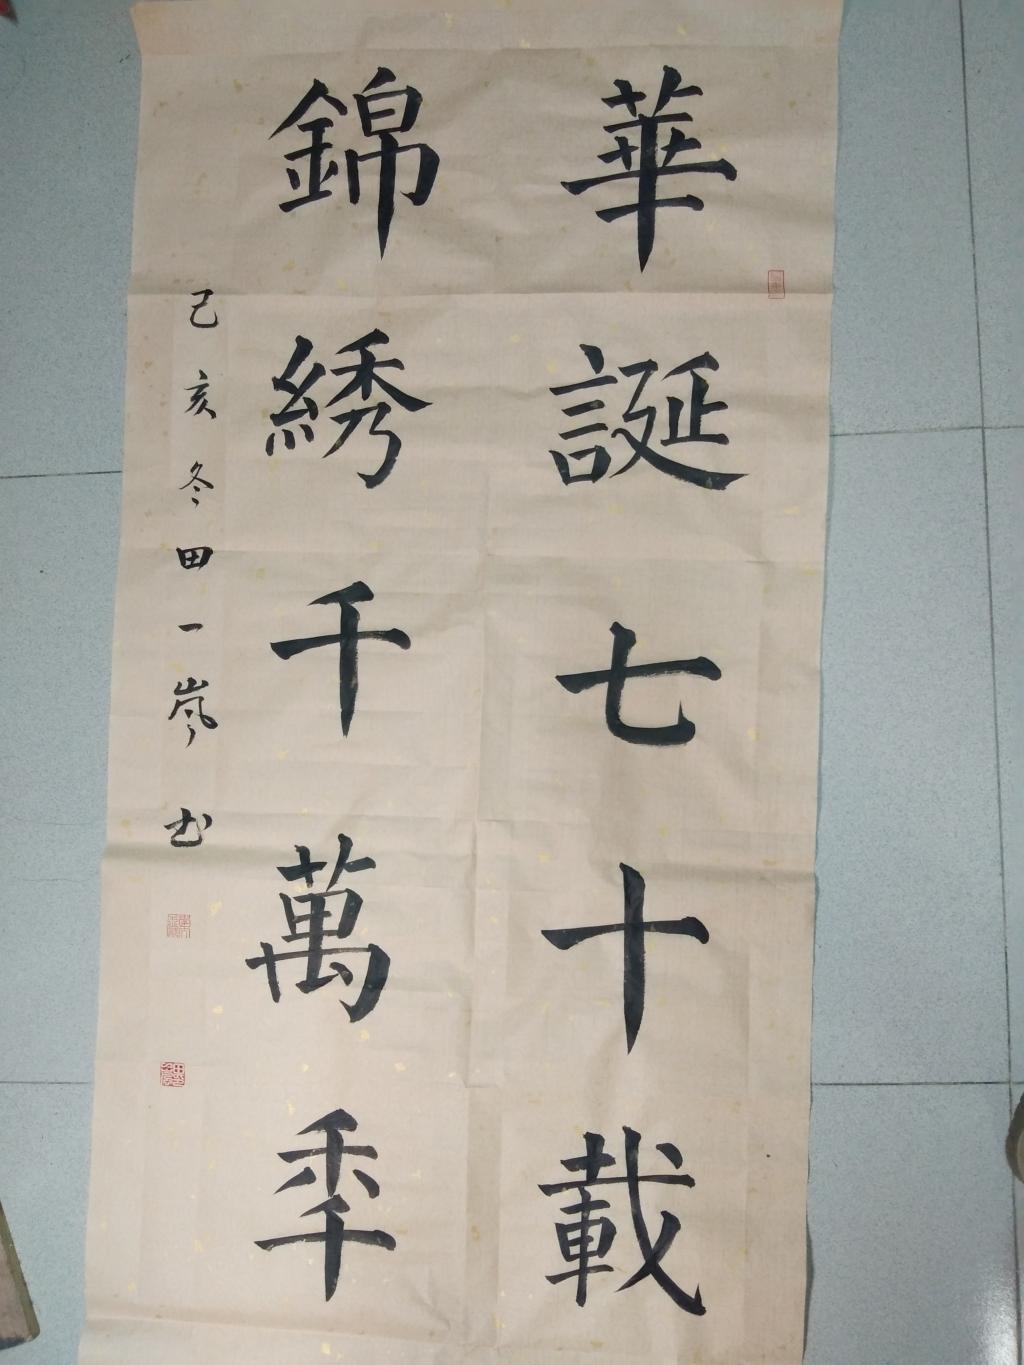 華誕七十載
錦綉千萬秊
己亥冬田一嵐书